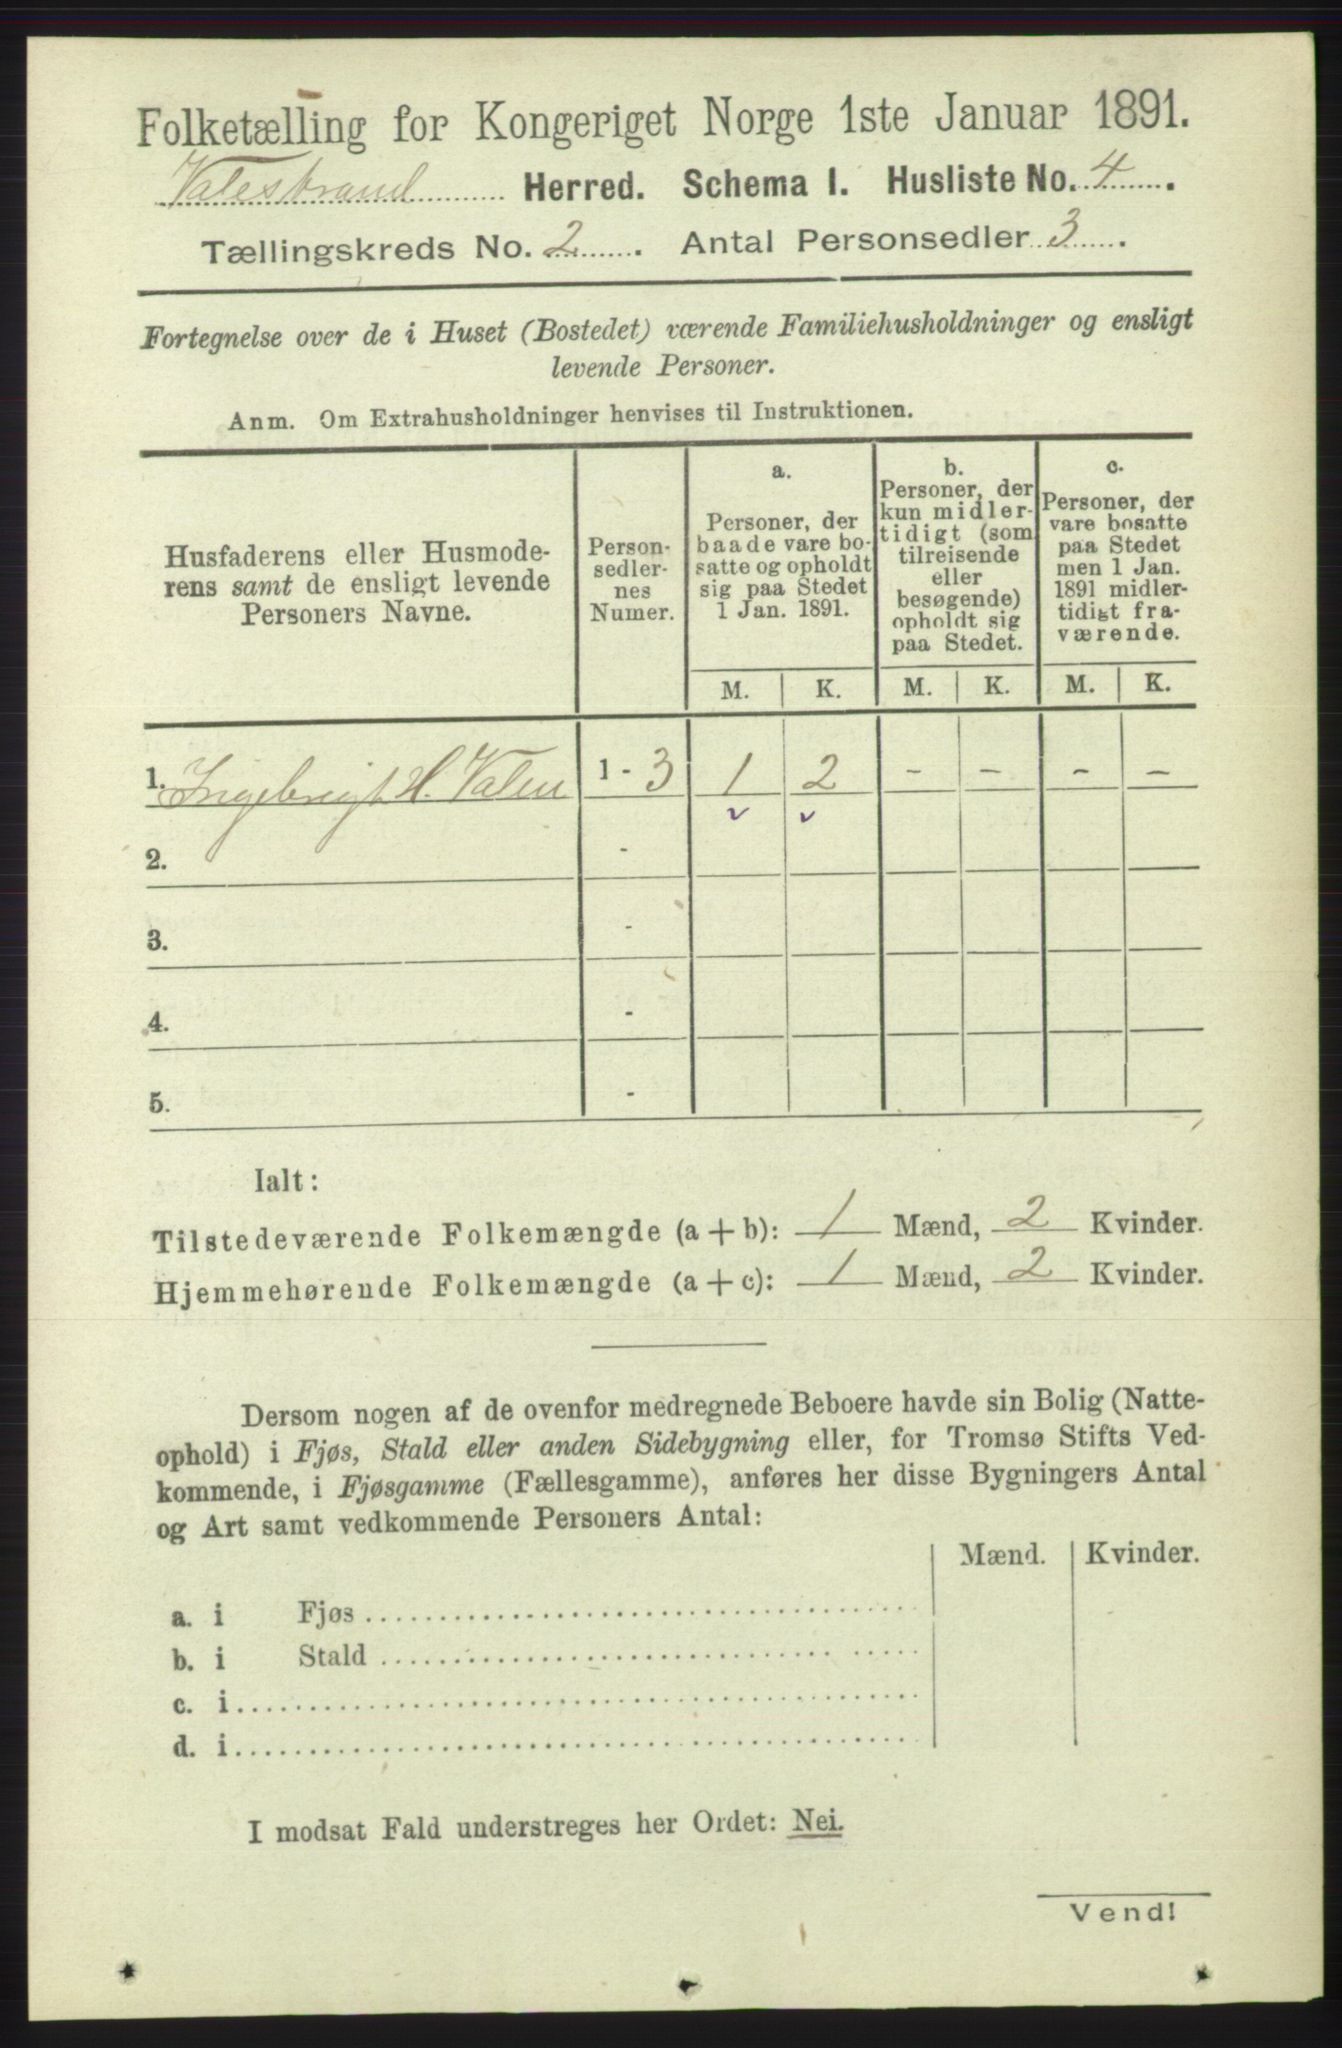 Folketælling for Kongeriget Norge 1ste Januar 1891.
Valestrand Herred. Schema I. Husliste No. 4.
Tællingskreds No. 2. Antal Personsedler 3.
Fortegnelse over de i Huset (Bostedet) værende Familiehusholdninger og ensligt
levende Personer.
Anm. Om Extrahusholdninger henvises til Instruktionen.
Husfaderens eller Husmode-
rens samt de ensligt levende
Personers Navne.
Person-
sedler-
nes
Numer.
a.
Personer, der
baade vare bo-
satte og opholdt
sig paa Stedet
1 Jan. 1891.
b.
Personer, der
kun midler-
tidigt (som
tilreisende
eller
besøgende)
opholdt sig
paa Stedet.
c.
Personer, der
vare bosatte
paa Stedet
men 1 Jan.
1891 midler-
tidigt fra-
værende.
M. K. M. K. M. K.
1. Ingebrigt H. Valen 1 - 3 1 2 - - - -
2. -
3. -
4. -
5. -
Ialt:
Tilstedeværende Folkemængde (a + b): 1 Mænd, 2 Kvinder.
Hjemmehørende Folkemængde (a + c): 1 Mænd, 2 Kvinder.
Dersom nogen af de ovenfor medregnede Beboere havde sin Bolig (Natte-
ophold) i Fjøs, Stald eller anden Sidebygning eller, for Tromsø Stifts Ved-
kommende, i Fjøsgamme (Fællesgamme), anføres her disse Bygningers Antal
og Art samt vedkommende Personers Antal:
Mænd. Kvinder.
a. i Fjøs
b. i Stald
c. i
d. i
I modsat Fald understreges her Ordet: Nei.
Vend!